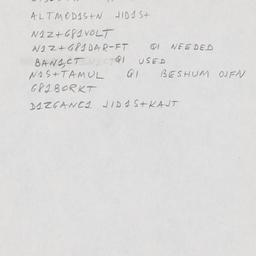 ALTMOD1S+N JID1S+
N1Z+G81VOLT
N1Z+G81DAR-FT Q1 NEEDED
BAN1CT Q1 USED
N1S+TAMUL Q1 BESHUM OJFN
G81BORKT
D1ZGANC1 JID1S+KAJT